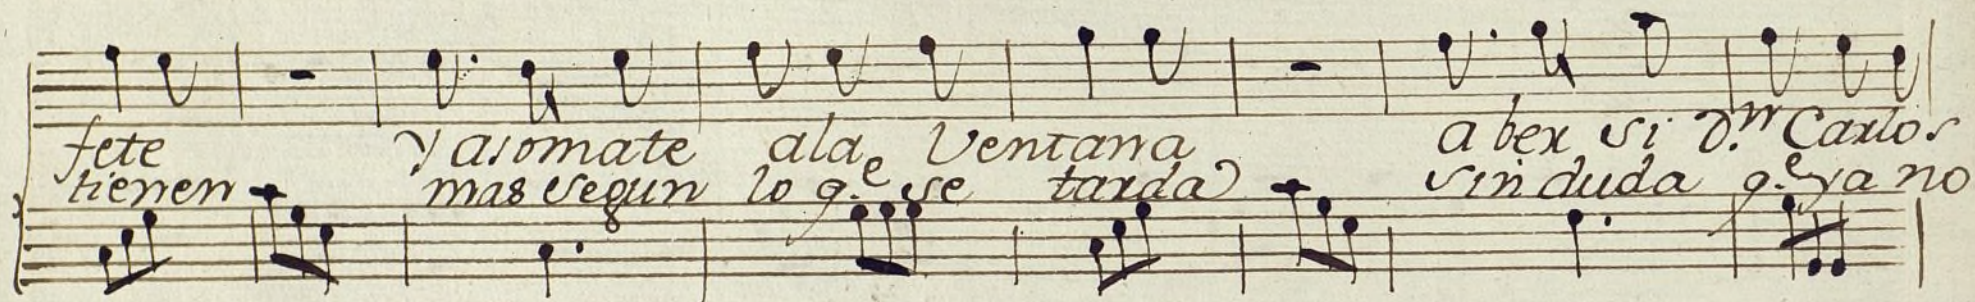 fete y asomate ala Ventana a ber si D.n Carlos
tienen mas segun lo q.e se tarda sin duda q.e ya no